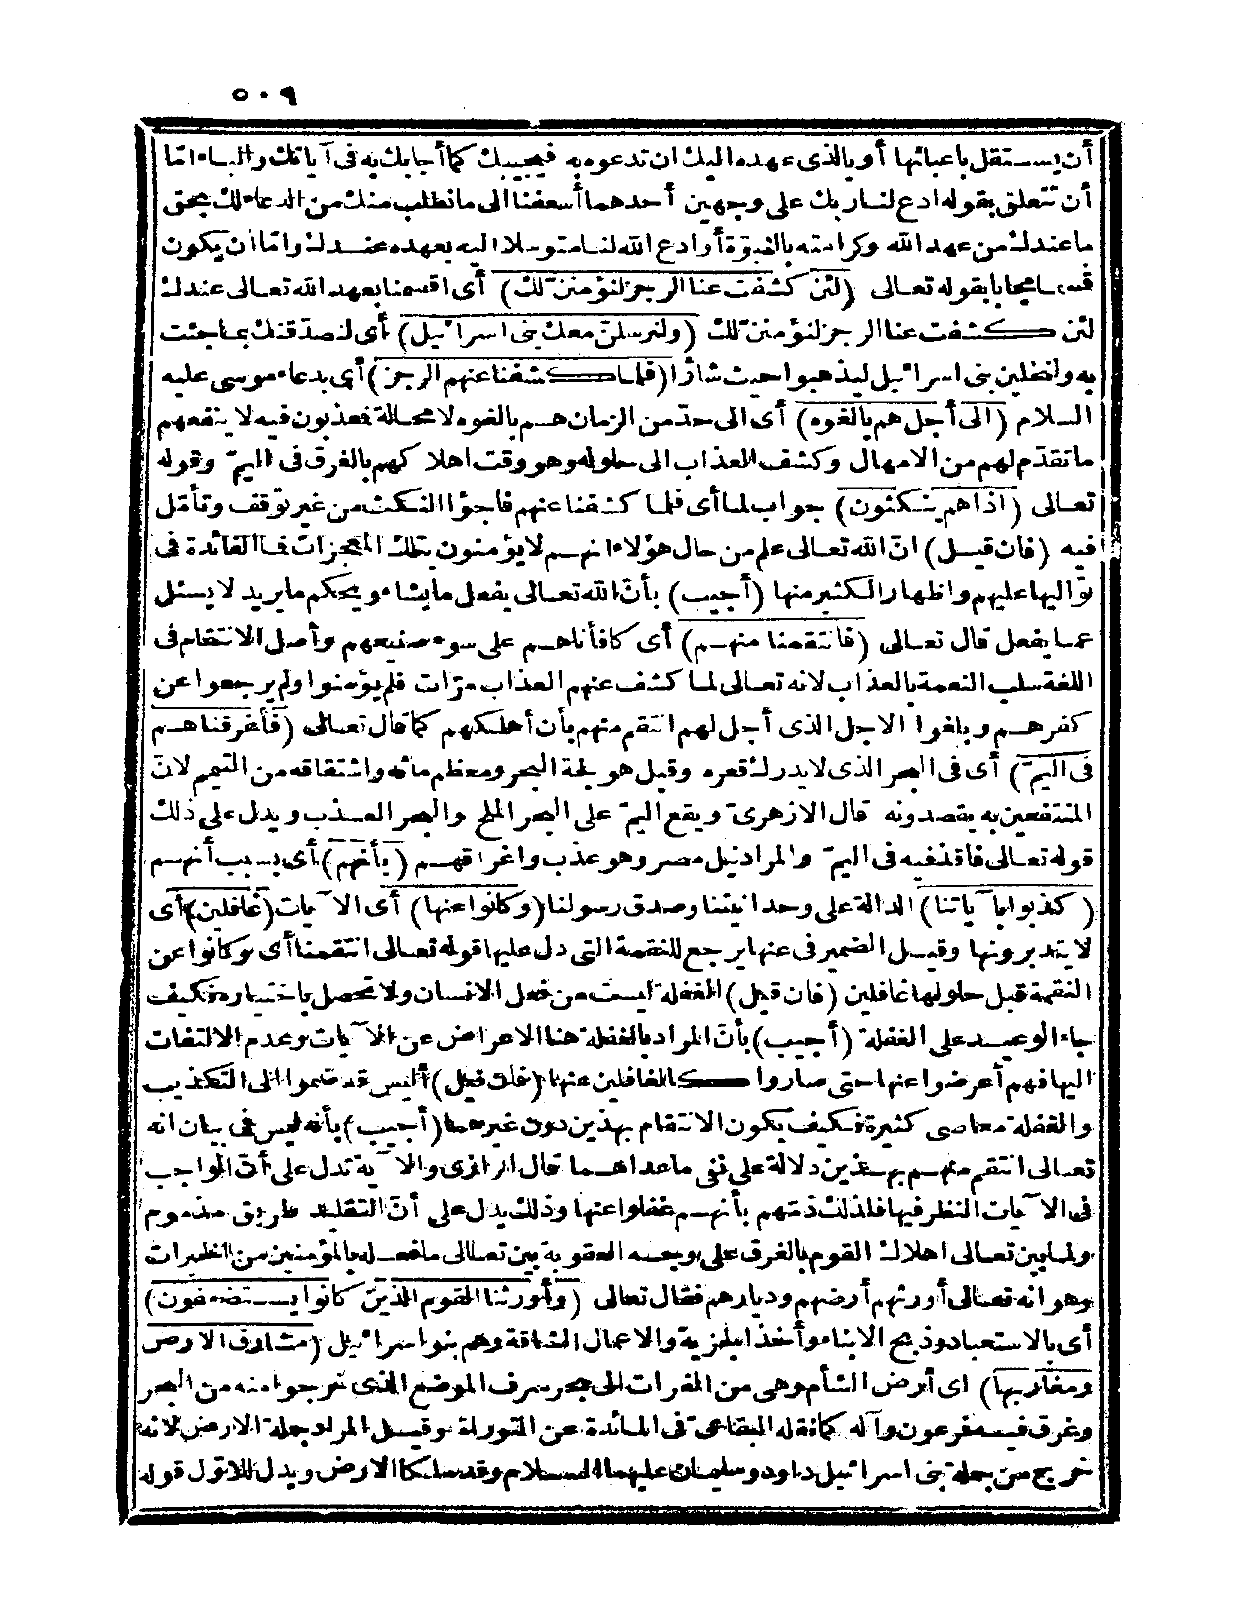 ٥٠٩
أن يستقل باعبائها أو بالذى عهده اليك ان تدعوه به فيجيبك كما أجابك به فى آياتك والباء امّا
أن تتعلق بقوله ادع لنا ربك على وجهين أحدهما أسعفنا الى ما نطلب منك من الدعاء لك بحق
ما عندك من عهد الله وكرامته بالنبوّة أو ادع الله لنا متوسلا اليه بعهده عندك وامّا ان يكون
قسما مجابا بقوله تعالى (لئن كشفت عنا الرجز لنؤمننّ لك) أى اقسمنا بعهد الله تعالى عندك
لئن كشفت عنا الرجز لنؤمننّ لك (ولنرسلنّ معك بنى اسرائيل) أى لنصدّقنك بما جئت
به ولنخلين بنى اسرائيل ليذهبوا حيث شاؤا (فلما كشفنا عنهم الرجز) أى بدعاء موسى عليه
السلام (الى أجل هم بالغوه) أى الى حدّ من الزمان هم بالغوه لا محالة فمعذبون فيه لا ينفعهم
ما تقدّم لهم من الامهال وكشف العذاب الى حلوله وهو وقت اهلاكهم بالغرق فى اليمّ وقوله
تعالى (اذا هم ينكثون) جواب لما أى فلما كشفنا عنهم فاجؤا النكث من غير توقف وتأمّل
فيه (فان قيل) انّ الله تعالى علم من حال هؤلاء انهم لا يؤمنون بتلك المعجزات فما الفائدة فى
تواليها عليهم واظهار الكثير منها (أجيب) بأنّ الله تعالى يفعل ما يشاء ويحكم ما يريد لا يسئل
عما يفعل قال تعالى (فانتقمنا منهم) أى كافأناهم على سوء صنيعهم وأصل الانتقام فى
اللغة سلب النعمة بالعذاب لانه تعالى لما كشف عنهم العذاب مرّات فلم يؤمنوا ولم يرجعوا عن
كفرهم وبلغوا الاجل الذى أجل لهم انتقم منهم بأن أهلكهم كما قال تعالى (فأغرقناهم
فى اليمّ) أى فى البحر الذى لا يدرك قعره وقيل هو لجة البحر ومعظم مائه واشتقاقه من التيمم لانّ
المنتفعين به يقصدونه قال الازهرى ويقع اليمّ على البحر الملح والبحر العذب ويدل على ذلك
قوله تعالى فاقذفيه فى اليمّ والمراد نيل مصر وهو عذب واغراقهم (بأنهم) أى بسبب أنهم
(كذبوا بآياتنا) الدالة على وحدانيتنا وصدق رسولنا (وكانوا عنها) أى الآيات (غافلين) أى
لا يتدبرونها وقيل الضمير فى عنها يرجع للنقمة التى دل عليها قوله تعالى انتقمنا أى وكانوا عن
النقمة قبل حلولها غافلين (فان قيل) الغفلة ليست من فعل الانسان ولا تحصل باختياره فكيف
جاء الوعيد على الغفلة (أجيب) بأنّ المراد بالغفلة هنا الاعراض عن الآيات وعدم الالتفات
اليها فهم أعرضوا عنها حتى صاروا كالغافلين عنها (فان قيل) أليس قد ضموا الى التكذيب
والغفلة معاصى كثيرة فكيف يكون الانتقام بهذين دون غيرهما (أجيب) بأنه ليس فى بيان انه
تعالى انتقم منهم بهذين دلالة على نفى ما عداهما قال الرازى والآية تدل على أنّ الواجب
فى الآيات النظر فيها فلذلك ذمّهم بأنهم غفلوا عنها وذلك يدل على أنّ التقليد طريق مذموم
ولما بين تعالى اهلاك القوم بالغرق على وجه العقوبة بين تعالى ما فعله بالمؤمنين من الخيرات
وهو انه تعالى أورثهم أرضهم وديارهم فقال تعالى (وأورثنا القوم الذين كانوا يستضعفون)
أى بالاستعباد وذبح الابناء وأخذ الجزية والاعمال الشاقة وهم بنو اسرائيل (مشارق الارض
ومغاربها) اى أرض الشأم وهى من الفرات الى بحر سرف الموضع الذى خرجوا منه من البحر
وغرق فيه فرعون وآله كما نقله البقاعى فى المائدة عن التوراة وقيل المراد جملة الارض لانه
خرج من جملة بنى اسرائيل داود وسليمان عليهما السلام وقد ملكا الارض ويدل للاوّل قوله